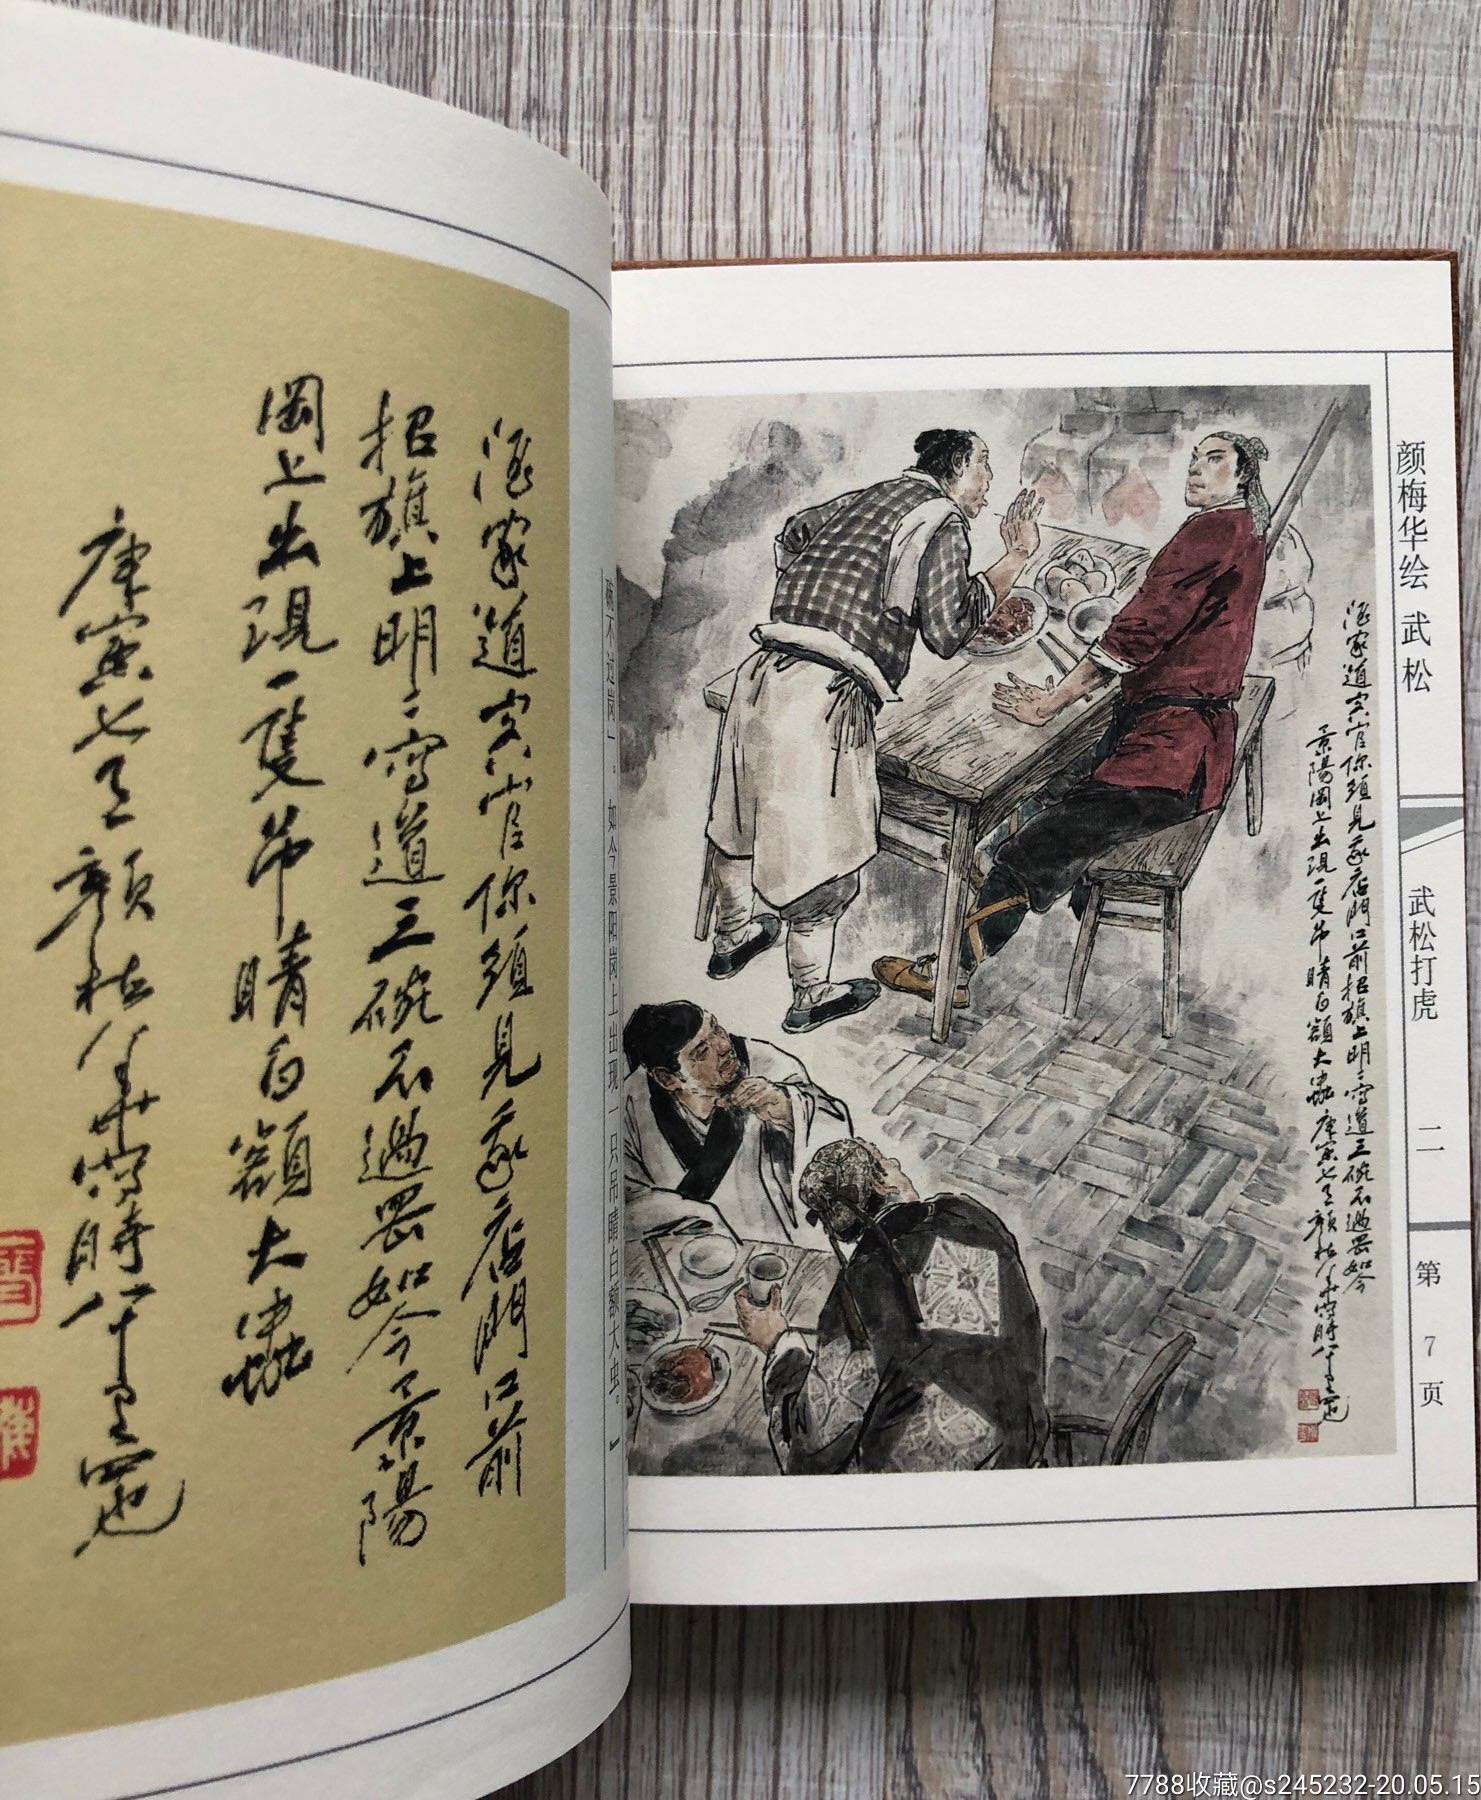 酒家道客官你須見我店門口前
招旗上明〻寫道三碗不過罡如今景陽
岡上出現一隻吊睛白額大蟲
庚寅七月顏梅華寫時八十
碗不过岗」。如今景阳岗上出现一只吊睛白额大虫。』
酒家道客官你須見我店門口前招旗上明〻寫道三碗不過罡如今
景陽岡上出現一隻吊睛白額大蟲庚寅七月顏梅華寫時八十
颜梅华绘 武松
武松打虎 二
第 7 页
7788收藏@s245232-20.05.15